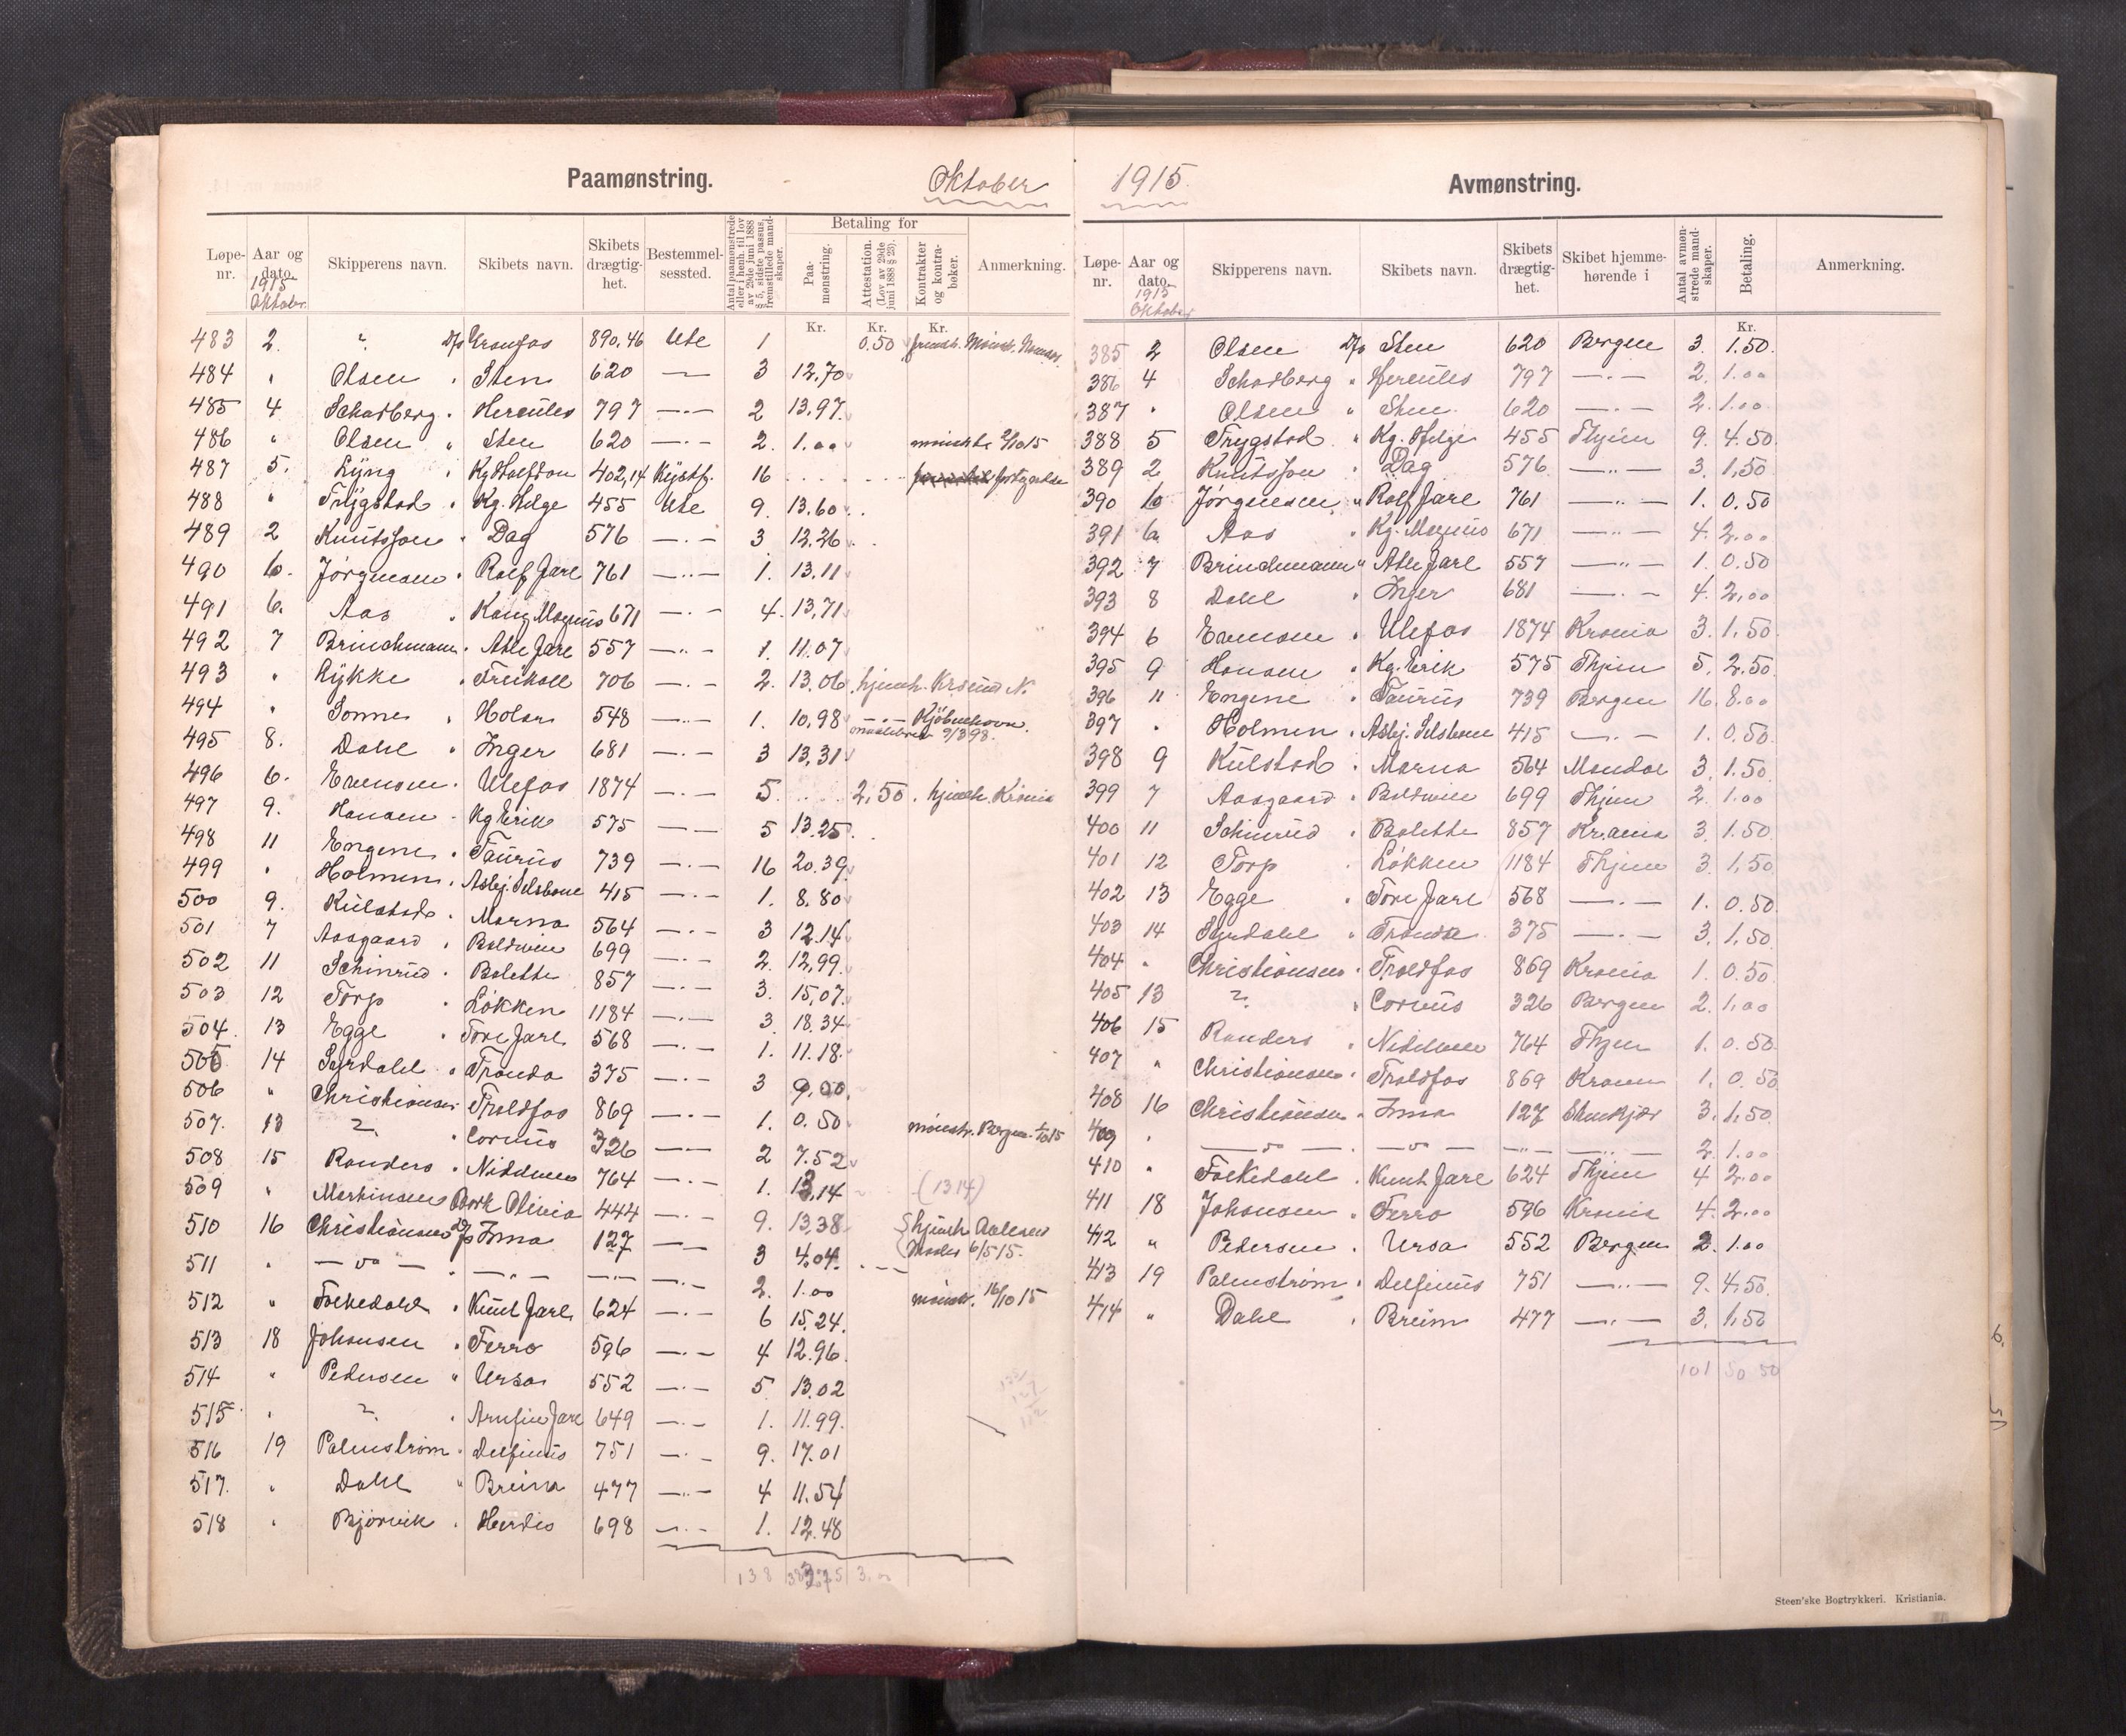 Paamønstring.
Oktober
Løpe-nr. Aar og dato. Skipperens navn. Skibets navn. Skibets drægtig-het. Bestemmel-sessted. Antal paamønstrede eller i henh. til lov av 29de juni 1888 § 5, sidste passus, fremstillede mand-skaper. Betaling for Paa-mønstring. Attestation. (Lov av 29de juni 1888 § 23). Kontrakter og kontra-bøker. Anmerkning.
1915 Oktober
Kr. Kr. Kr.
483 2. ? D/s Kronfos 890,46 Ute 1 0.50
484 " Olsen " Sten 620 — 3 12.70
485 4 Schadberg " Hercules 797 —"— 2 13.97
486 " Olsen " Sten 620 —"— 2. 1.00 mønstr. 2/10 15
487 5. Lyng " Kg Halfdan 402,14 Kystf. 16
488 " Trygstad " Kg. Helge 455 Ute 9. 13.60
489 2 Knutsson " Dag 576 —"— 3 12.26
490 6. Jörgensen " Rolf Jarl 761 —"— 1. 13.11
491 6. Aas " Kong Magnus 671 —"— 4. 13,71
492 7 Brinchmann " Atle Jarl 557 —"— 1. 11.07
493 " Rykke " Freikoll 706 —"— 2. 13.06 hjemh. Krsund N.
494 " Sonne " Holar 548 —"— 1. 10,98 —"— Kjöbenhavn
maalebrev 9/3 98.
495 8. Dahl " Inger 681 —"— 3 13,31
496 6. Evensen " Ulefos 1874 —"— 5. 2,50 hjemh. Krania
497 9. Hansen " Kg Erik 575 —"— 5 13.25
498 11 Engene " Taurus 739 —"— 16 20.39
499 " Holmen " Asbj. Selsbane 415 —"— 1. 8.80
500 9. Kulstad " Marna 564 —"— 3 12.14
501 7 Aasgaard " Baldwin 699 —"— 2. 12,99
502 11 Schinrud " Bolette 857 —"— 3. 15,07
503 12 Torp " Lökken 1184 —"— 3. 18.34
504. 13 Egge " Tore Jarl 568 —"— 1. 11.18
505 14 Syrdahl " Tronda 375 —"— 3 9,00
506 " Christiansen " Troldfos 869 —"— 1. 0.50 mönstr. Bergen 1/10 15
507. 13 ? " Corvus 326 —"— 2 7.52
508 15 Randers " Nidelven 764 —"— 1. 13,14 (13 14)
509 " Martinsen Bark Olivia 444 —"— 9. 13,38 hjemh. Aalesund
510 16 Christiansen D/s Irma 127 —"— 3 4.04
511 " —"— —"— —"— 2. 1.00 mönstr. 16/10 15
512 " Folkedahl " Knut Jarl 624 —"— 6 15.24
513 18 Johansen " Ferro 596 —"— 4 12.96
514 " Pedersen " Ursa 552 —"— 5 13.02
515 " ? " Arnfin Jarl 649 —"— 1. 11.99
516 19 Palmström " Delfinus 751 —"— 9. 17.01
517. " Dahl " Breim 477 —"— 4 11.54
518 " Bjørvik " Herdis 698 —"— 1. 12.48
138 3.00
1915.
Avmønstring.
Løpe-nr. Aar og dato. Skipperens navn. Skibets navn. Skibets drægtig-het. Skibet hjemme-hørende i Antal avmøn-strede mand-skaper. Betaling. Anmerkning.
1915 Oktober
Kr.
385 2 Olsen D/s Sten 620 Bergen 3. 1.50
386 4 Schadberg " Hercules 797 —"— 2. 1.00
387 " Olsen " Sten 620 —"— 2. 1.00
388 5 Trygstad " Kg. Helge 455 Thjem 9. 4.50
389 2 Knutsson " Dag 576 —"— 3. 1,50
390 6 Jörgensen " Rolf Jarl 761 —"— 1. 0.50
391 6. Aas " Kg. Magnus 671 —"— 4. 2.00
392 7 Brinchmann " Atle Jarl 557 —"— 1. 0.50
393 8 Dahl " Inger 681 —"— 4. 2,00
394 6 Evensen " Ulefos 1874 Krania 3. 1,50
395 9 Hansen " Kg. Erik 575 Thjem 5. 2.50
396 11 Engene " Taurus 739 Bergen 16. 8.00
397 " Holmen " Asbj. Selsbane 415 —"— 1. 0.50
398 9 Kulstad " Marna 564 Mandal 3. 1.50
399 7 Aasgaard " Baldwin 699 Thjem 2. 1.00
400 11 Schinrud " Bolette 857 Krania 3. 1.50
401 12 Torp " Lökken 1184 Thjem 3. 1,50
402 13 Egge " Tore Jarl 568 —"— 1. 0.50
403 14 Syrdahl " Tronda 375 —"— 3. 1,50
404 " Christiansen " Troldfos 869 Krania 1. 0.50
405 13 ? " Corvus 326 Bergen 2. 1,00
406 15 Randers " Nidelven 764 Thjem 1. 0.50
407 " Christiansen " Troldfos 869 Krania 1. 0.50
408 16 Christiansen " Irma 127 Stenkjær 3. 1,50
409 " —"— —"— —"— —"— 2. 1.00
410 " Folkedahl " Knut Jarl 624 Thjem 4 2.00
411 18 Johansen " Ferro 596 Krania 4. 2.00
412 " Pedersen " Ursa 552 Bergen 2. 1.00
413 19 Palmström " Delfinus 751 —"— 9. 4.50
414 " Dahl " Breim 477 —"— 3. 1,50
101 50 50
Steen'ske Bogtrykkeri. Kristiania.